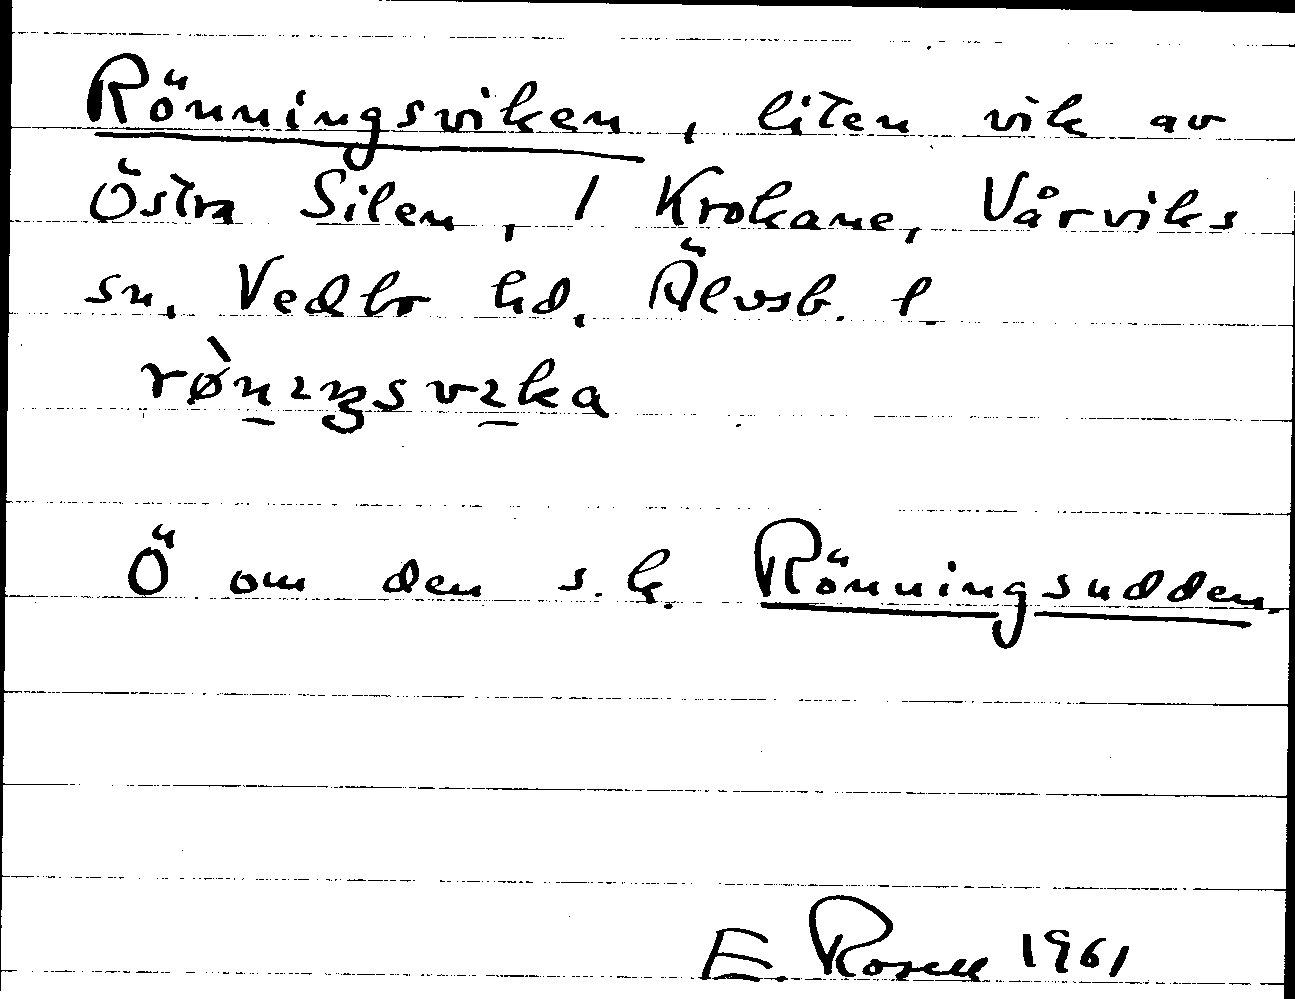 Rönningsviken, liten vik av
Östra Silen, 1 Krokane, Vårviks
sn. Vedbo hd. Älvsb. l.
rø̀n̠ıŋsvı̠ka
Ö om den s.k. Rönningsudden.
E. Rosell 1961